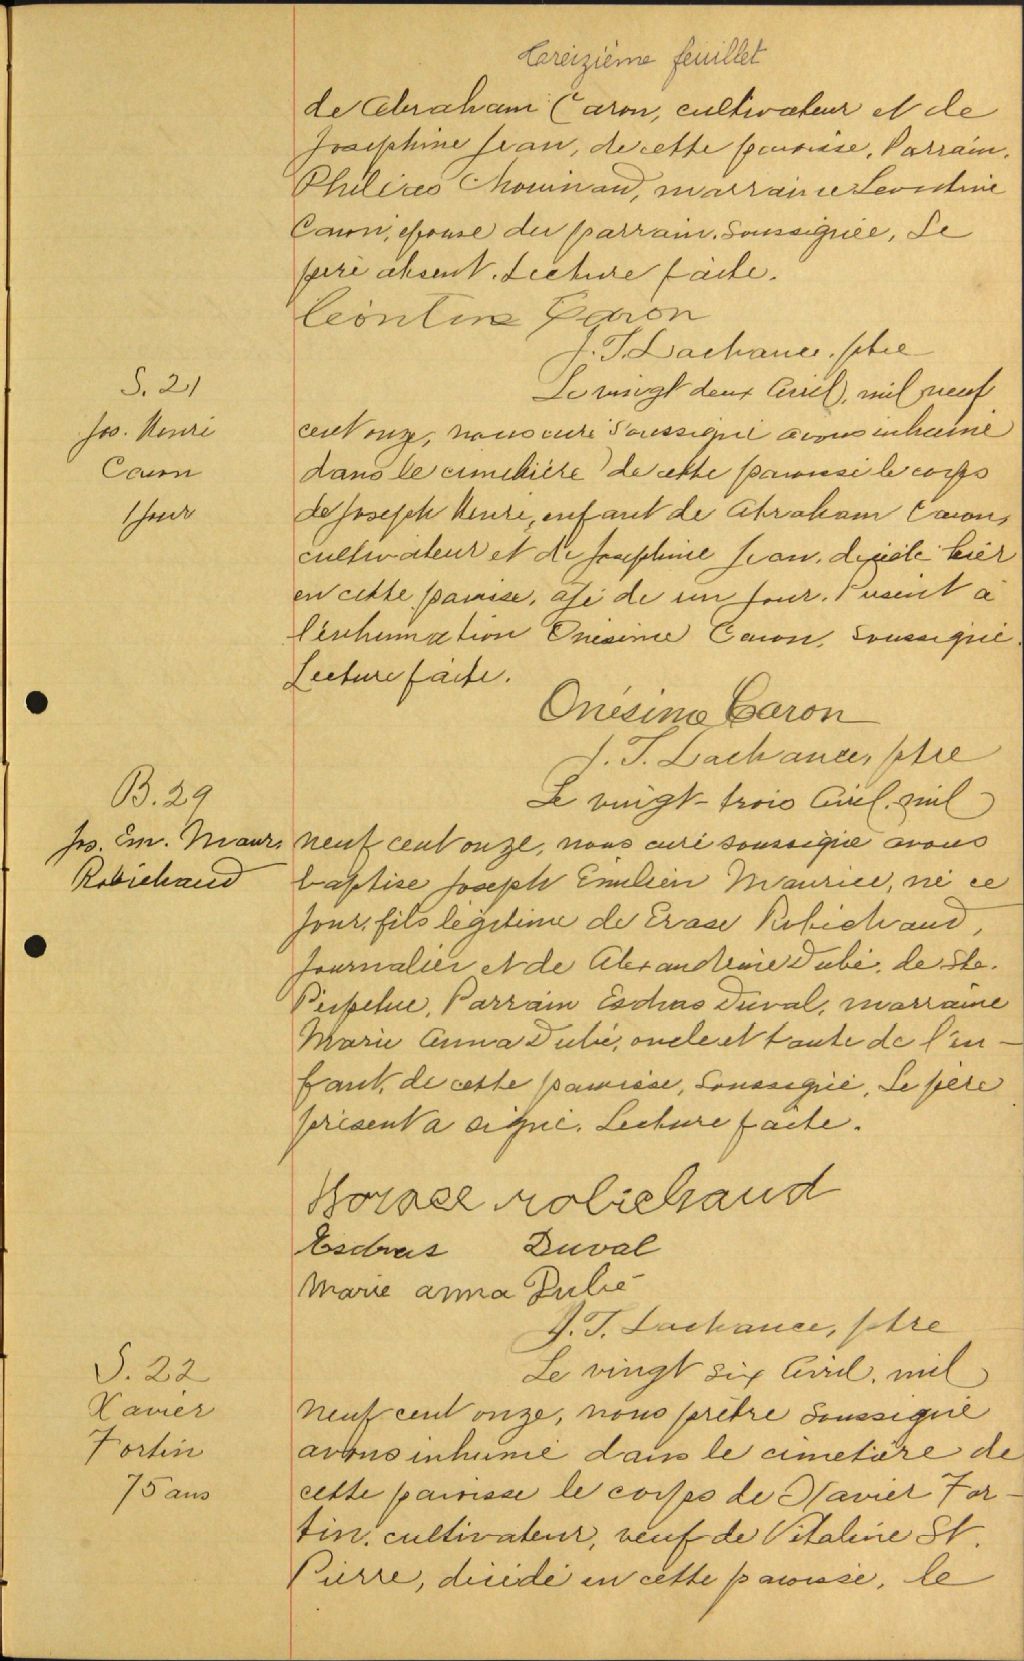 treizième feuillet
de Abraham Caron, cultivateur et de
Joséphine Jean, de cette paroisse. Parrain,
Chouinard, marraine Léontine
Caron, épouse du parrain, soussignée, Le
père absent. Lecture faite.
Léontine Caron
J. T. Lachance, ptre
S. 21
Jos. Henri
Caron
1 jour
Le vingt deux Avril, mil neuf
cent onze, nous curé soussigné avons inhumé
dans le cimetière de cette paroisse le corps
de Joseph Henri, enfant de Abraham Caron,
cultivateur et de Joséphine Jean, décédé hier
en cette paroisse, agé de un jour. Présent à
l'inhumation Onésime Caron, soussigné.
Lecture faite.
Onésime Caron
J. T. Lachance, ptre
B. 29
Jos. Em. Maur.
Robichaud
Le vingt-trois Avril, mil
neuf cent onze, nous curé soussigné avons
baptisé Joseph Emilien Maurice, né ce
jour, fils légitime de Robichaud,
journalier et de Alexandrine Dubé, de Ste.
Perpétue. Parrain Esdras Duval, marraine
Marie Anna Dubé, oncle et tante de l'en-
fant, de cette paroisse, soussigné, Le père
présent a signé. Lecture faite.
Horace robichaud
Esdras Duval
Marie anna Dubé
J. T. Lachance, ptre
S. 22
Xavier
Fortin
75 ans
Le vingt six Avril, mil
neuf cent onze, nous prêtre soussigné
avons inhumé dans le cimetière de
cette paroisse le corps de Xavier For-
tin, cultivateur, veuf de Vitaline St.
Pierre, décédé en cette paroisse, le